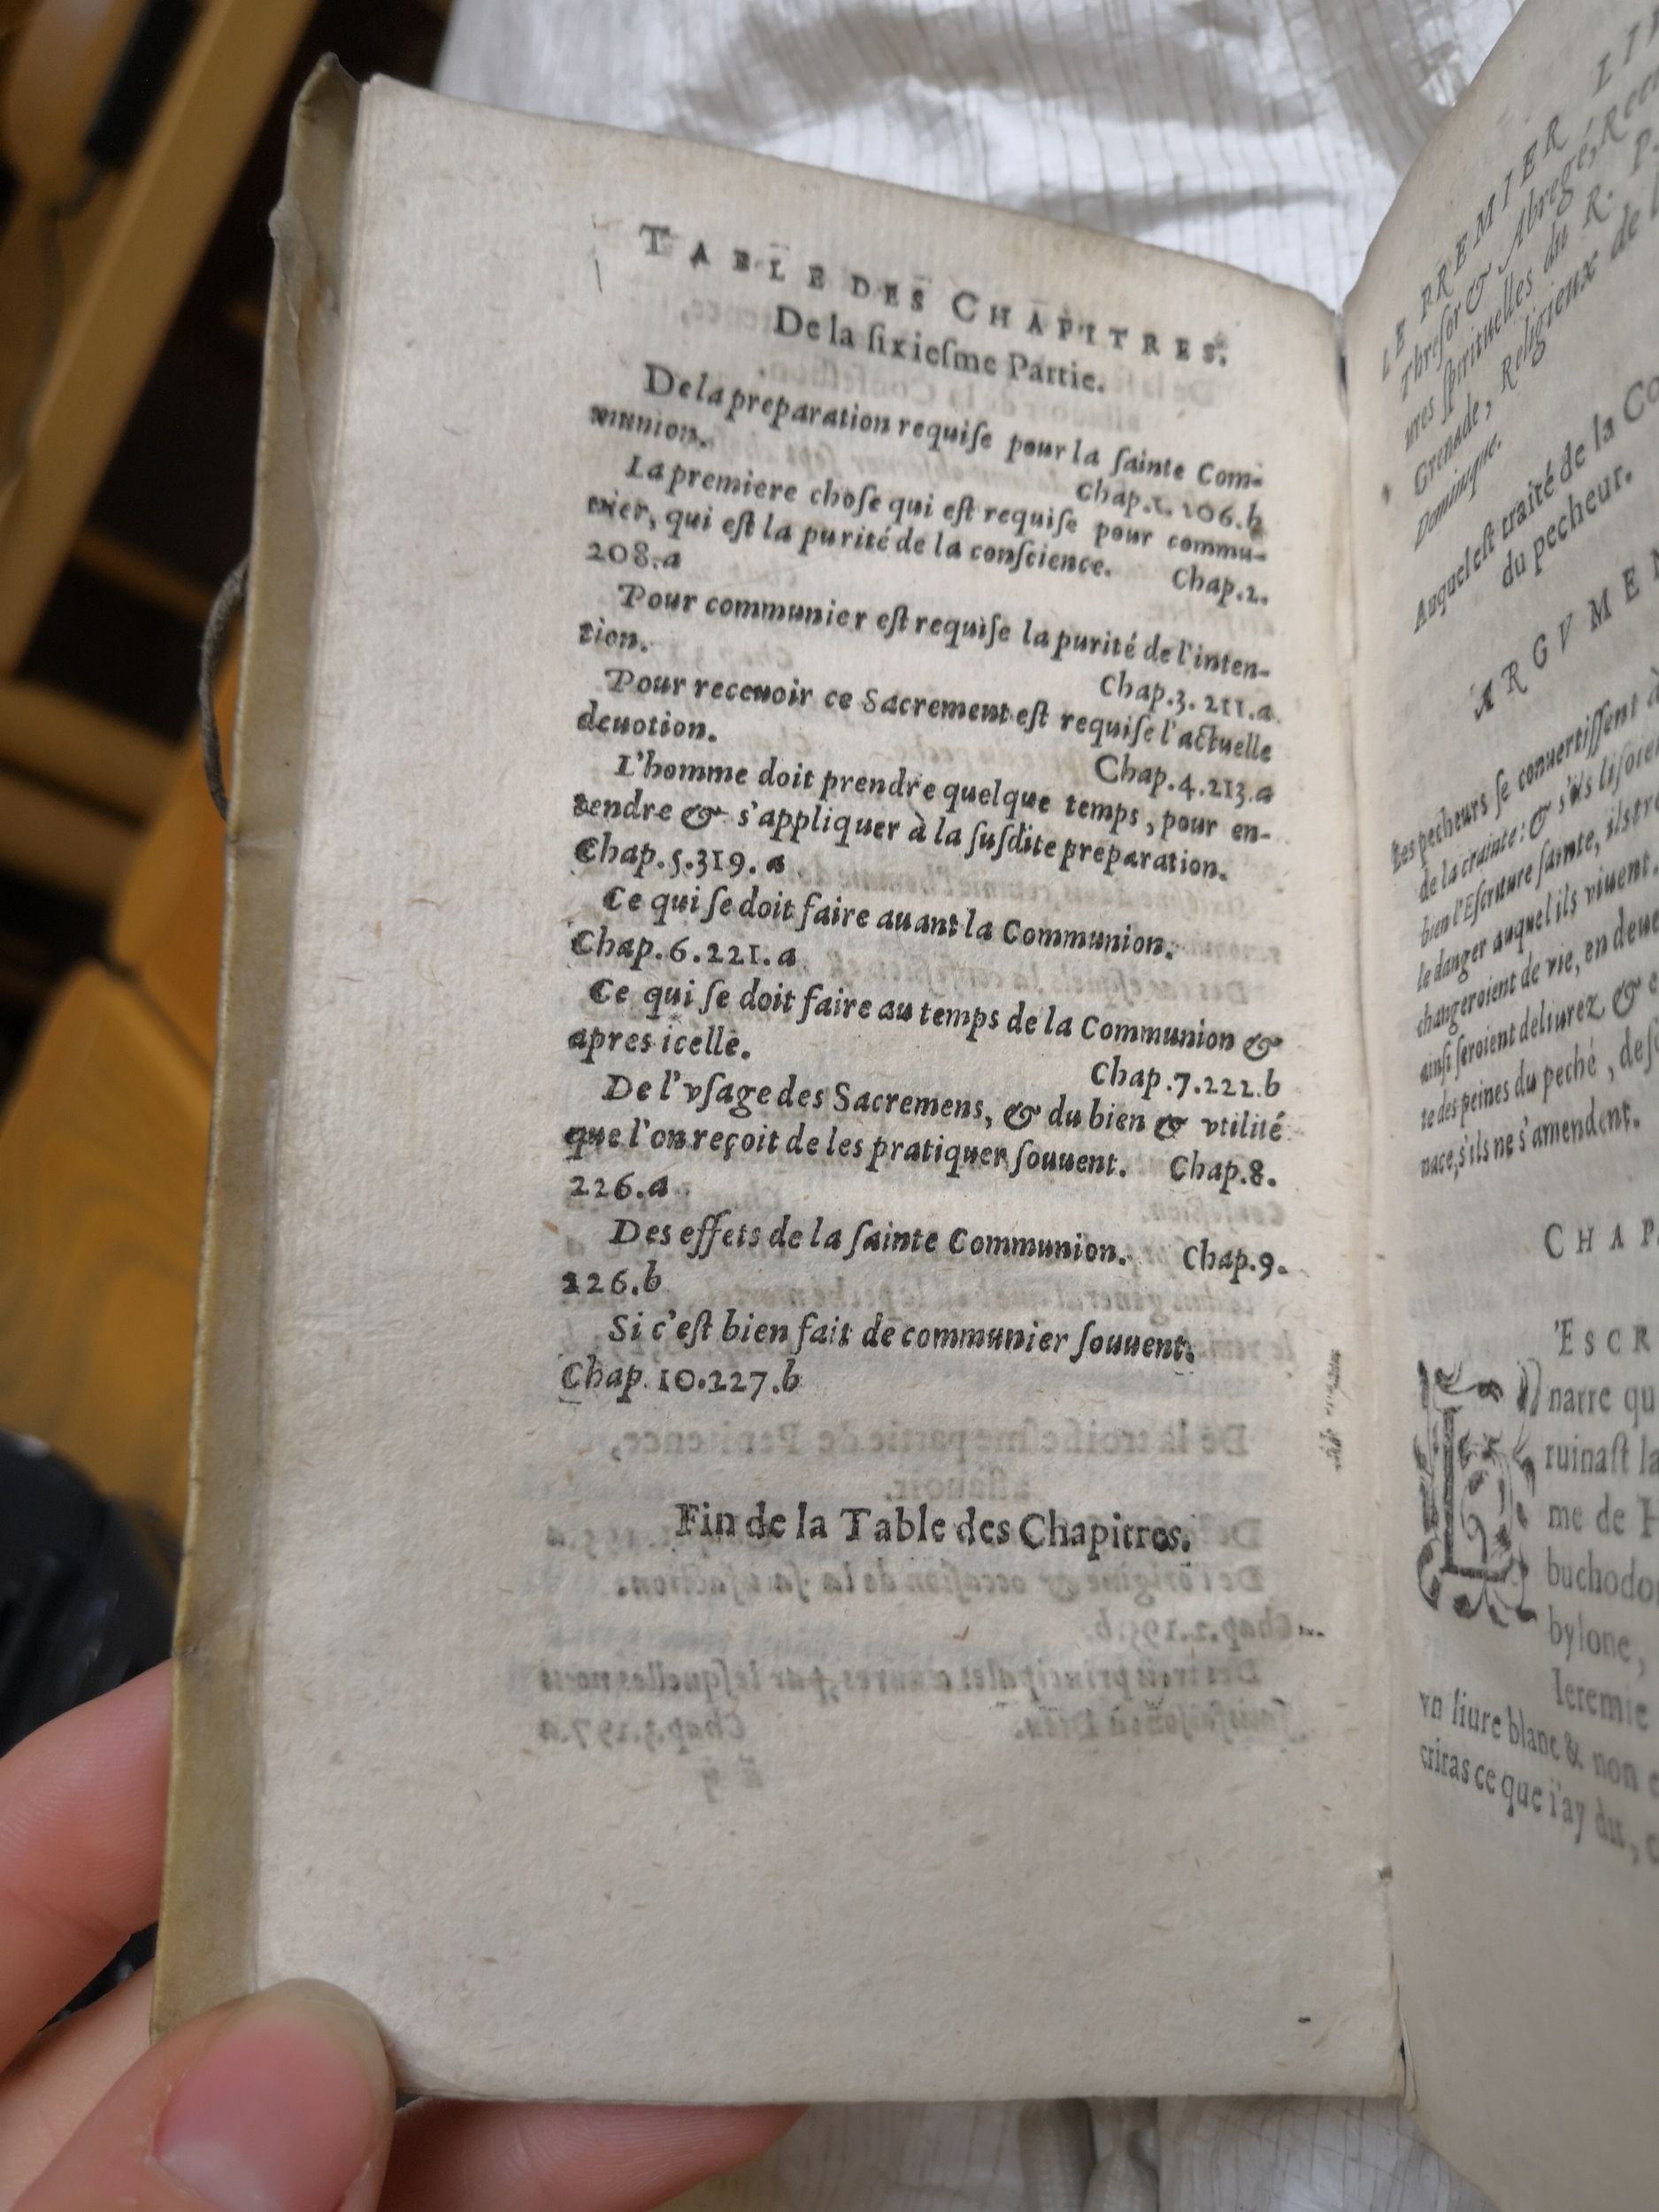 TABLE DES CHAPITRES.
De la ſixieſme Partie.
De la preparation requiſe pour la ſainte Com-
munion. Chap.1. 106.b
La premiere choſe qui eſt requiſe pour commu-
nier, qui eſt la purité de la conſcience. Chap.2.
208.a
Pour communier eſt requiſe la purité de l'inten-
tion. Chap.3. 211.a
Pour receuoir ce Sacrement eſt requiſe l'actuelle
deuotion. Chap.4.213.a
L'homme doit prendre quelque temps, pour en-
tendre & s'appliquer à la ſuſdite preparation.
Chap.5.319.a
Ce qui ſe doit faire auant la Communion.
Chap.6.221.a
Ce qui ſe doit faire au temps de la Communion &
apres icelle. Chap.7.222.b
De l'vſage des Sacremens, & du bien & vtilité
que l'on reçoit de les pratiquer ſouuent. Chap.8.
226.a
Des effets de la ſainte Communion. Chap.9.
226.b
Si c'eſt bien fait de communier ſouuent.
Chap.10.227.b
Fin de la Table des Chapitres.
LE PREMIER LI
Threſor & Abregé, Recu
ures ſpirituelles du R. P.
Grenade, Religieux de l
Dominique.
Auquel eſt traité de la Co
du pecheur.
ARGVMEN
Les pecheurs ſe conuertiſſent à
de la crainte: & s'ils liſoien
bien l'Eſcriture ſainte, ils
le danger auquel ils viuent.
changeroient de vie, en deue
ainſi ſeroient deliurez & e
te des peines du peché, de
nace, s'ils ne s'amendent.
CHAP
L'ESCR
narre qu
ruinaſt la
me de H
buchodo
bylone,
Ieremie
vn liure blanc & non e
criras ce que i'ay dit,